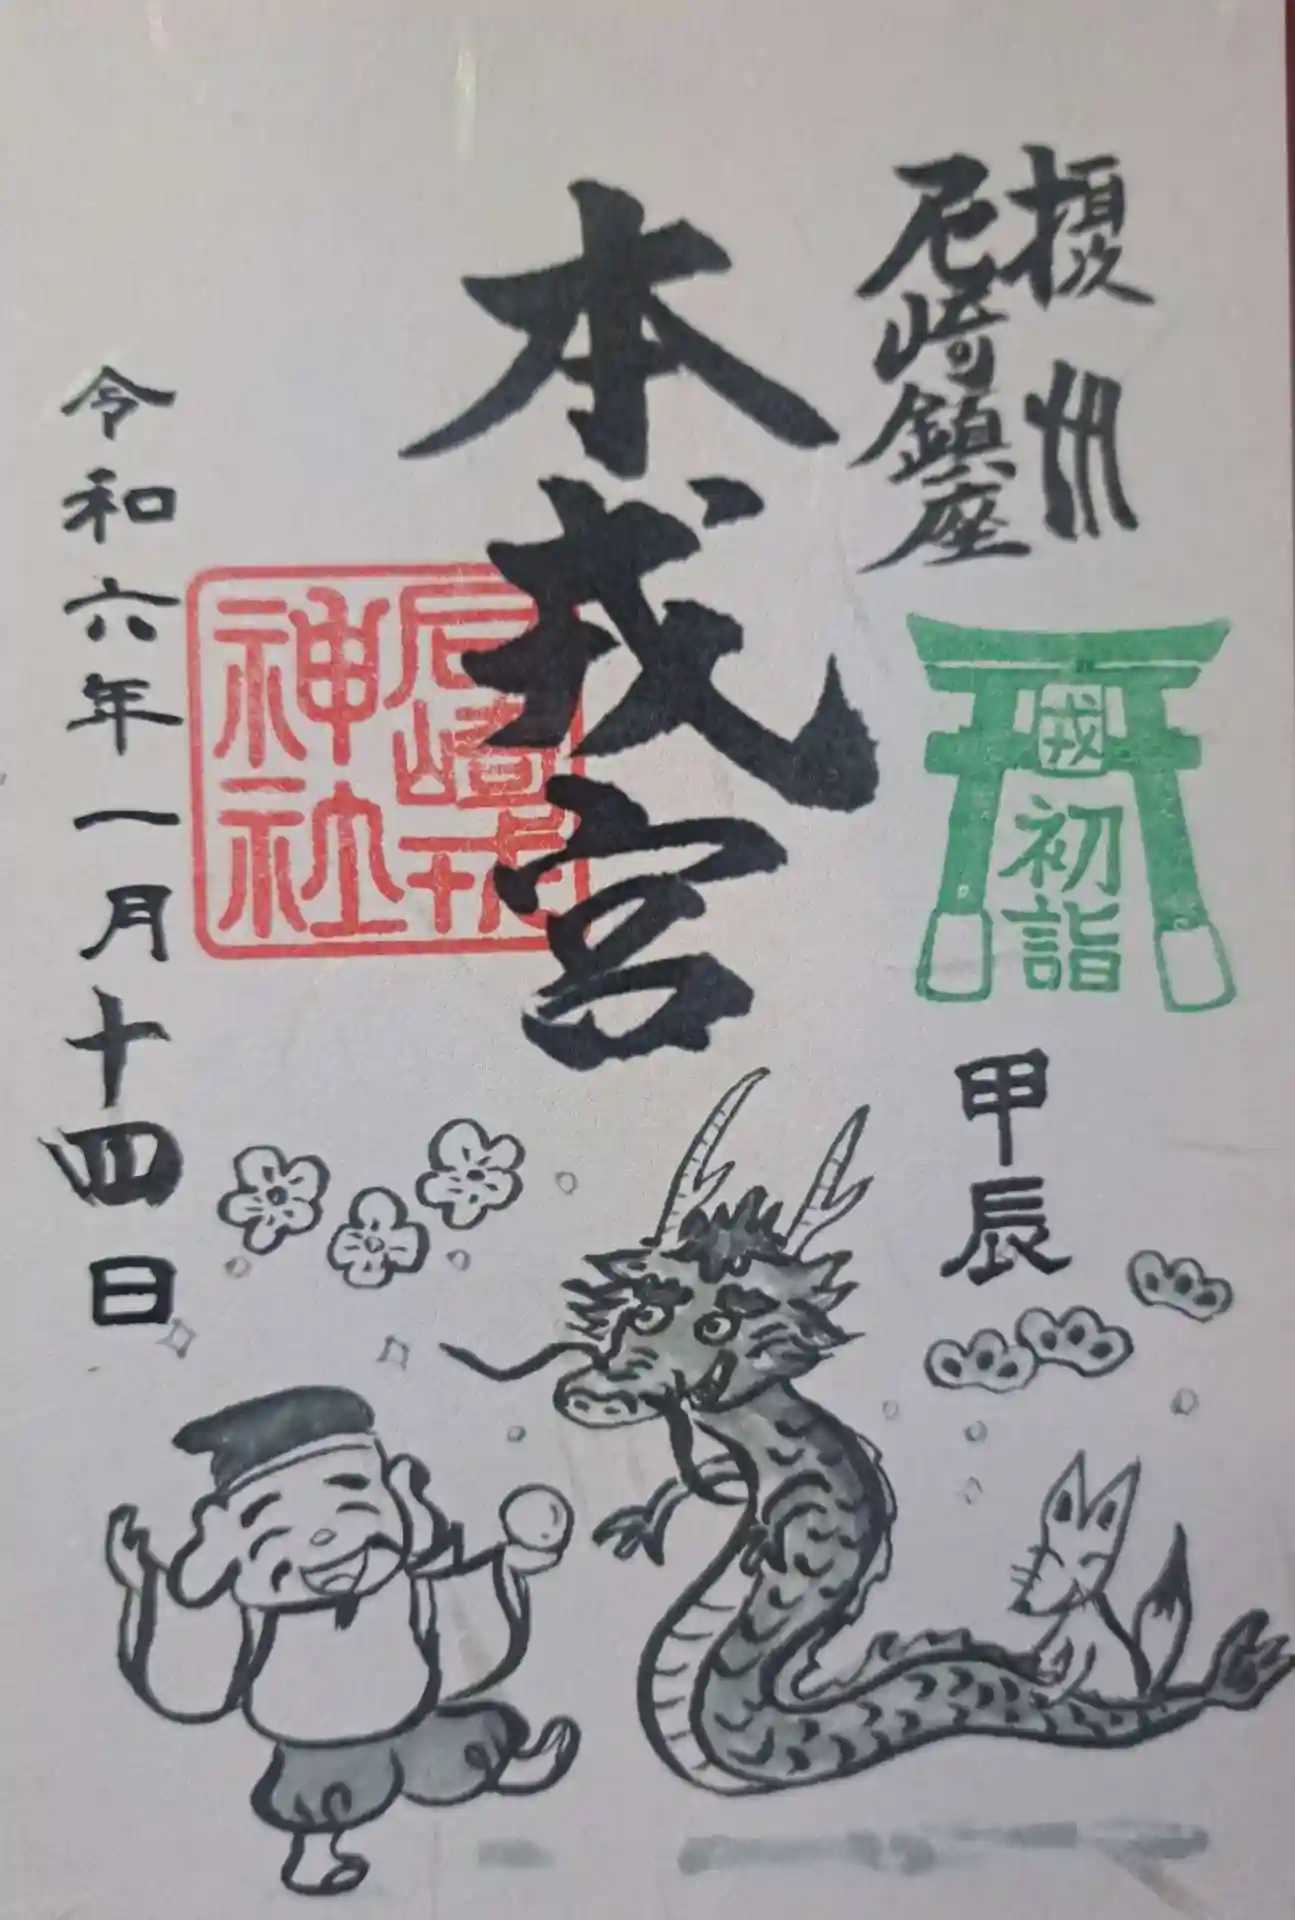 摂州
尼崎鎮座
戎
初詣
甲辰
本戎宮
尼崎戎
神社
令和六年一月十四日